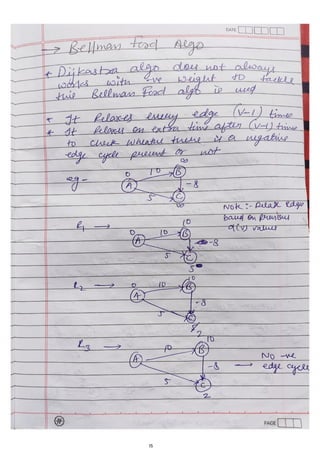 DATE
→ Bellman Ford Algo
* Dijkastra algo does not always
works with -ve weight to tackle
this Bellman Ford algo is used
* It Relaxes every edge (V-1) times
* It Relaxes an extra time after (V-1) time
to check wheater there is a negative
edge cycle present or not
∞
eg - 0 A 10 B
-8
5 C
∞
Note :- Relax Edge
based on previous
d(v) values
R1 → 0 A 10 B 10
-8
5 C
5
R2 → 0 A 10 B 10
-8
5 C
2
R3 → A 10 B 10
-8 → No -ve
edge cycle
5 C
2
PAGE
15